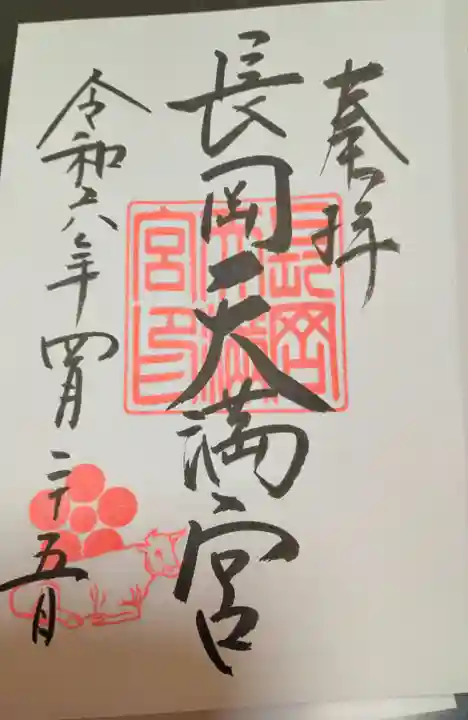 奉拝
長岡天満宮
令和六年四月二十五日
長岡
天満
宮印